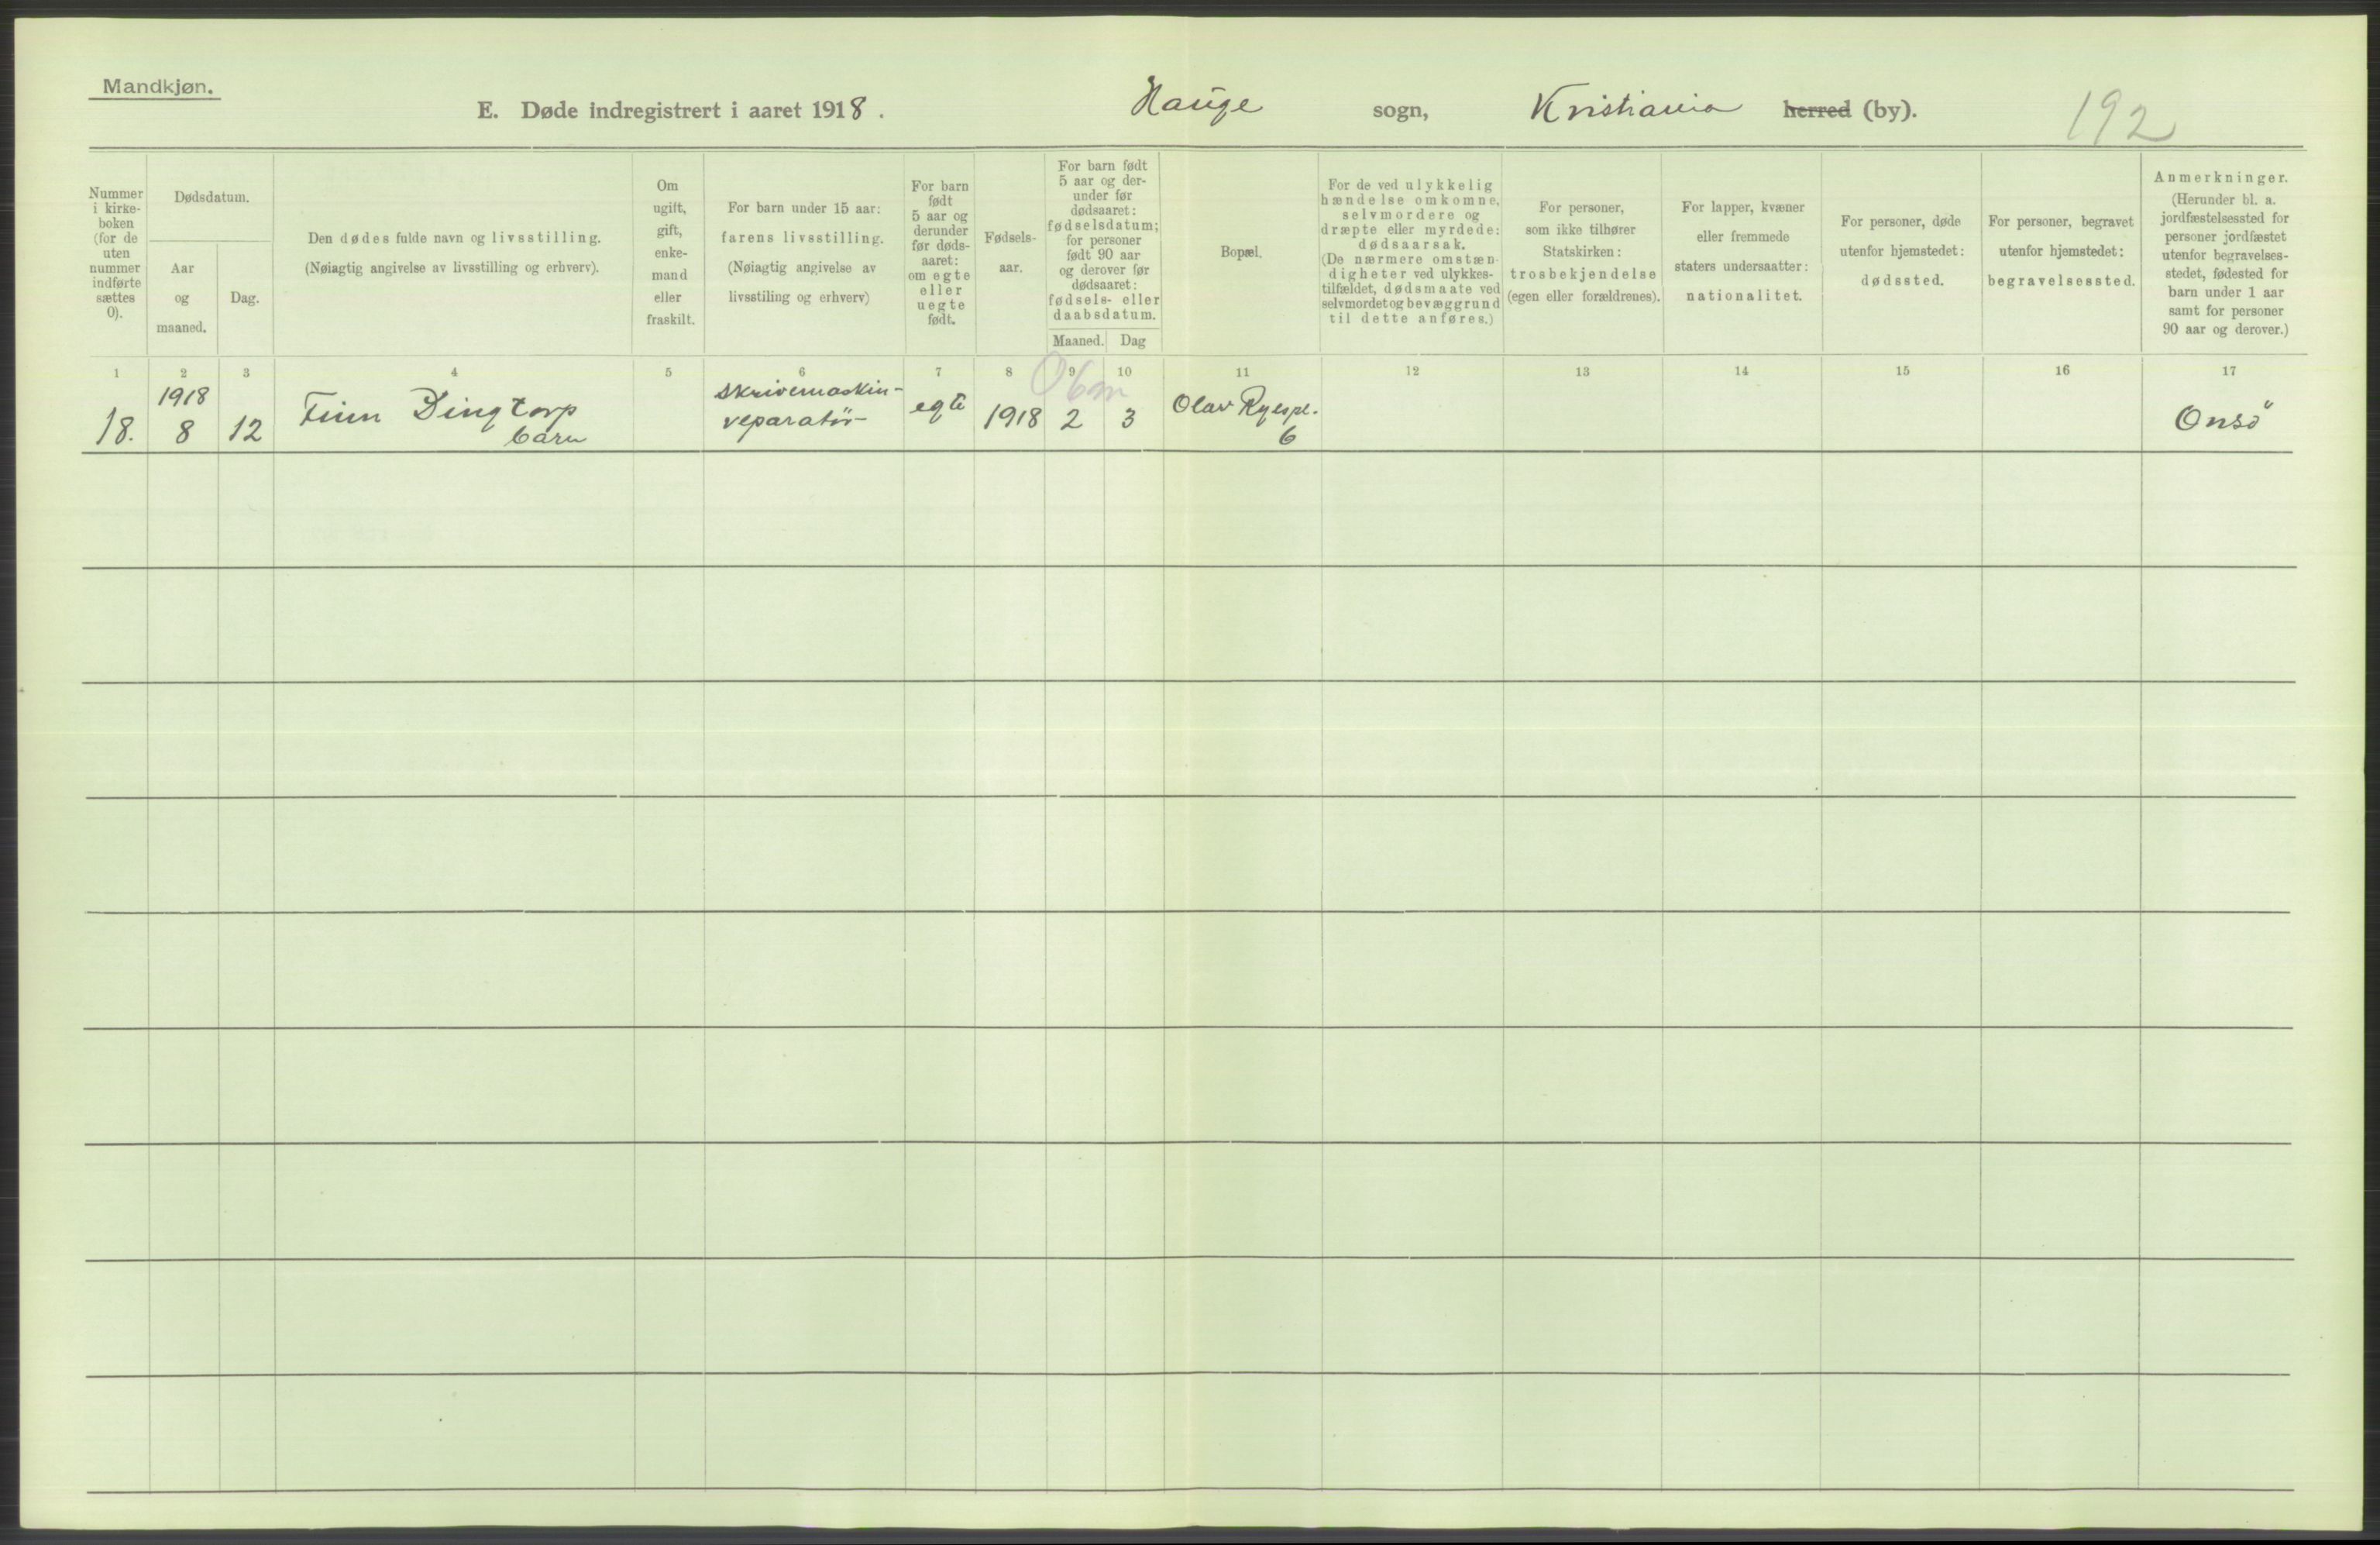 Mandkjøn.
E. Døde indregistrert i aaret 1918. Hauge sogn, Kristiania herred (by). 192
Nummer i kirke- boken (for de uten nummer indførte sættes 0).
Dødsdatum.
Aar og maaned.
Dag.
Den dødes fulde navn og livsstilling.
(Nøiagtig angivelse av livsstilling og erhverv).
Om ugift, gift, enke- mand eller fraskilt.
For barn under 15 aar:
farens livsstilling.
(Nøiagtig angivelse av
livsstiling og erhverv)
For barn født 5 aar og derunder før døds- aaret: om egte eller uegte født.
Fødsels- aar.
For barn født 5 aar og der- under før dødsaaret: fødselsdatum; for personer født 90 aar og derover før dødsaaret: fødsels- eller daabsdatum.
Maaned. Dag
Bopæl.
For de ved ulykkelig
hændelse omkomne,
selvmordere og
dræpte eller myrdede:
dødsaarsak.
(De nærmere omstæn-
digheter ved ulykkes-
tilfældet, dødsmaate ved
selvmordet og bevæggrund
til dette anføres.)
For personer,
som ikke tilhører
Statskirken:
trosbekjendelse
(egen eller forældrenes).
For lapper, kvæner
eller fremmede
staters undersaatter:
nationalitet.
For personer, døde
utenfor hjemstedet:
dødssted.
For personer, begravet
utenfor hjemstedet:
begravelsessted.
Anmerkninger.
(Herunder bl. a.
jordfæstelsessted for
personer jordfæstet
utenfor begravelses-
stedet, fødested for
barn under 1 aar
samt for personer
90 aar og derover.)
1 2 3 4 5 6 7 8 9 10 11 12 13 14 15 16 17
1918
18. 8 12
Finn Dingtorp
barn
skrivemaskin-
reparatör
egte
1918 2 3
Olav Ryespl.
6
Onsö